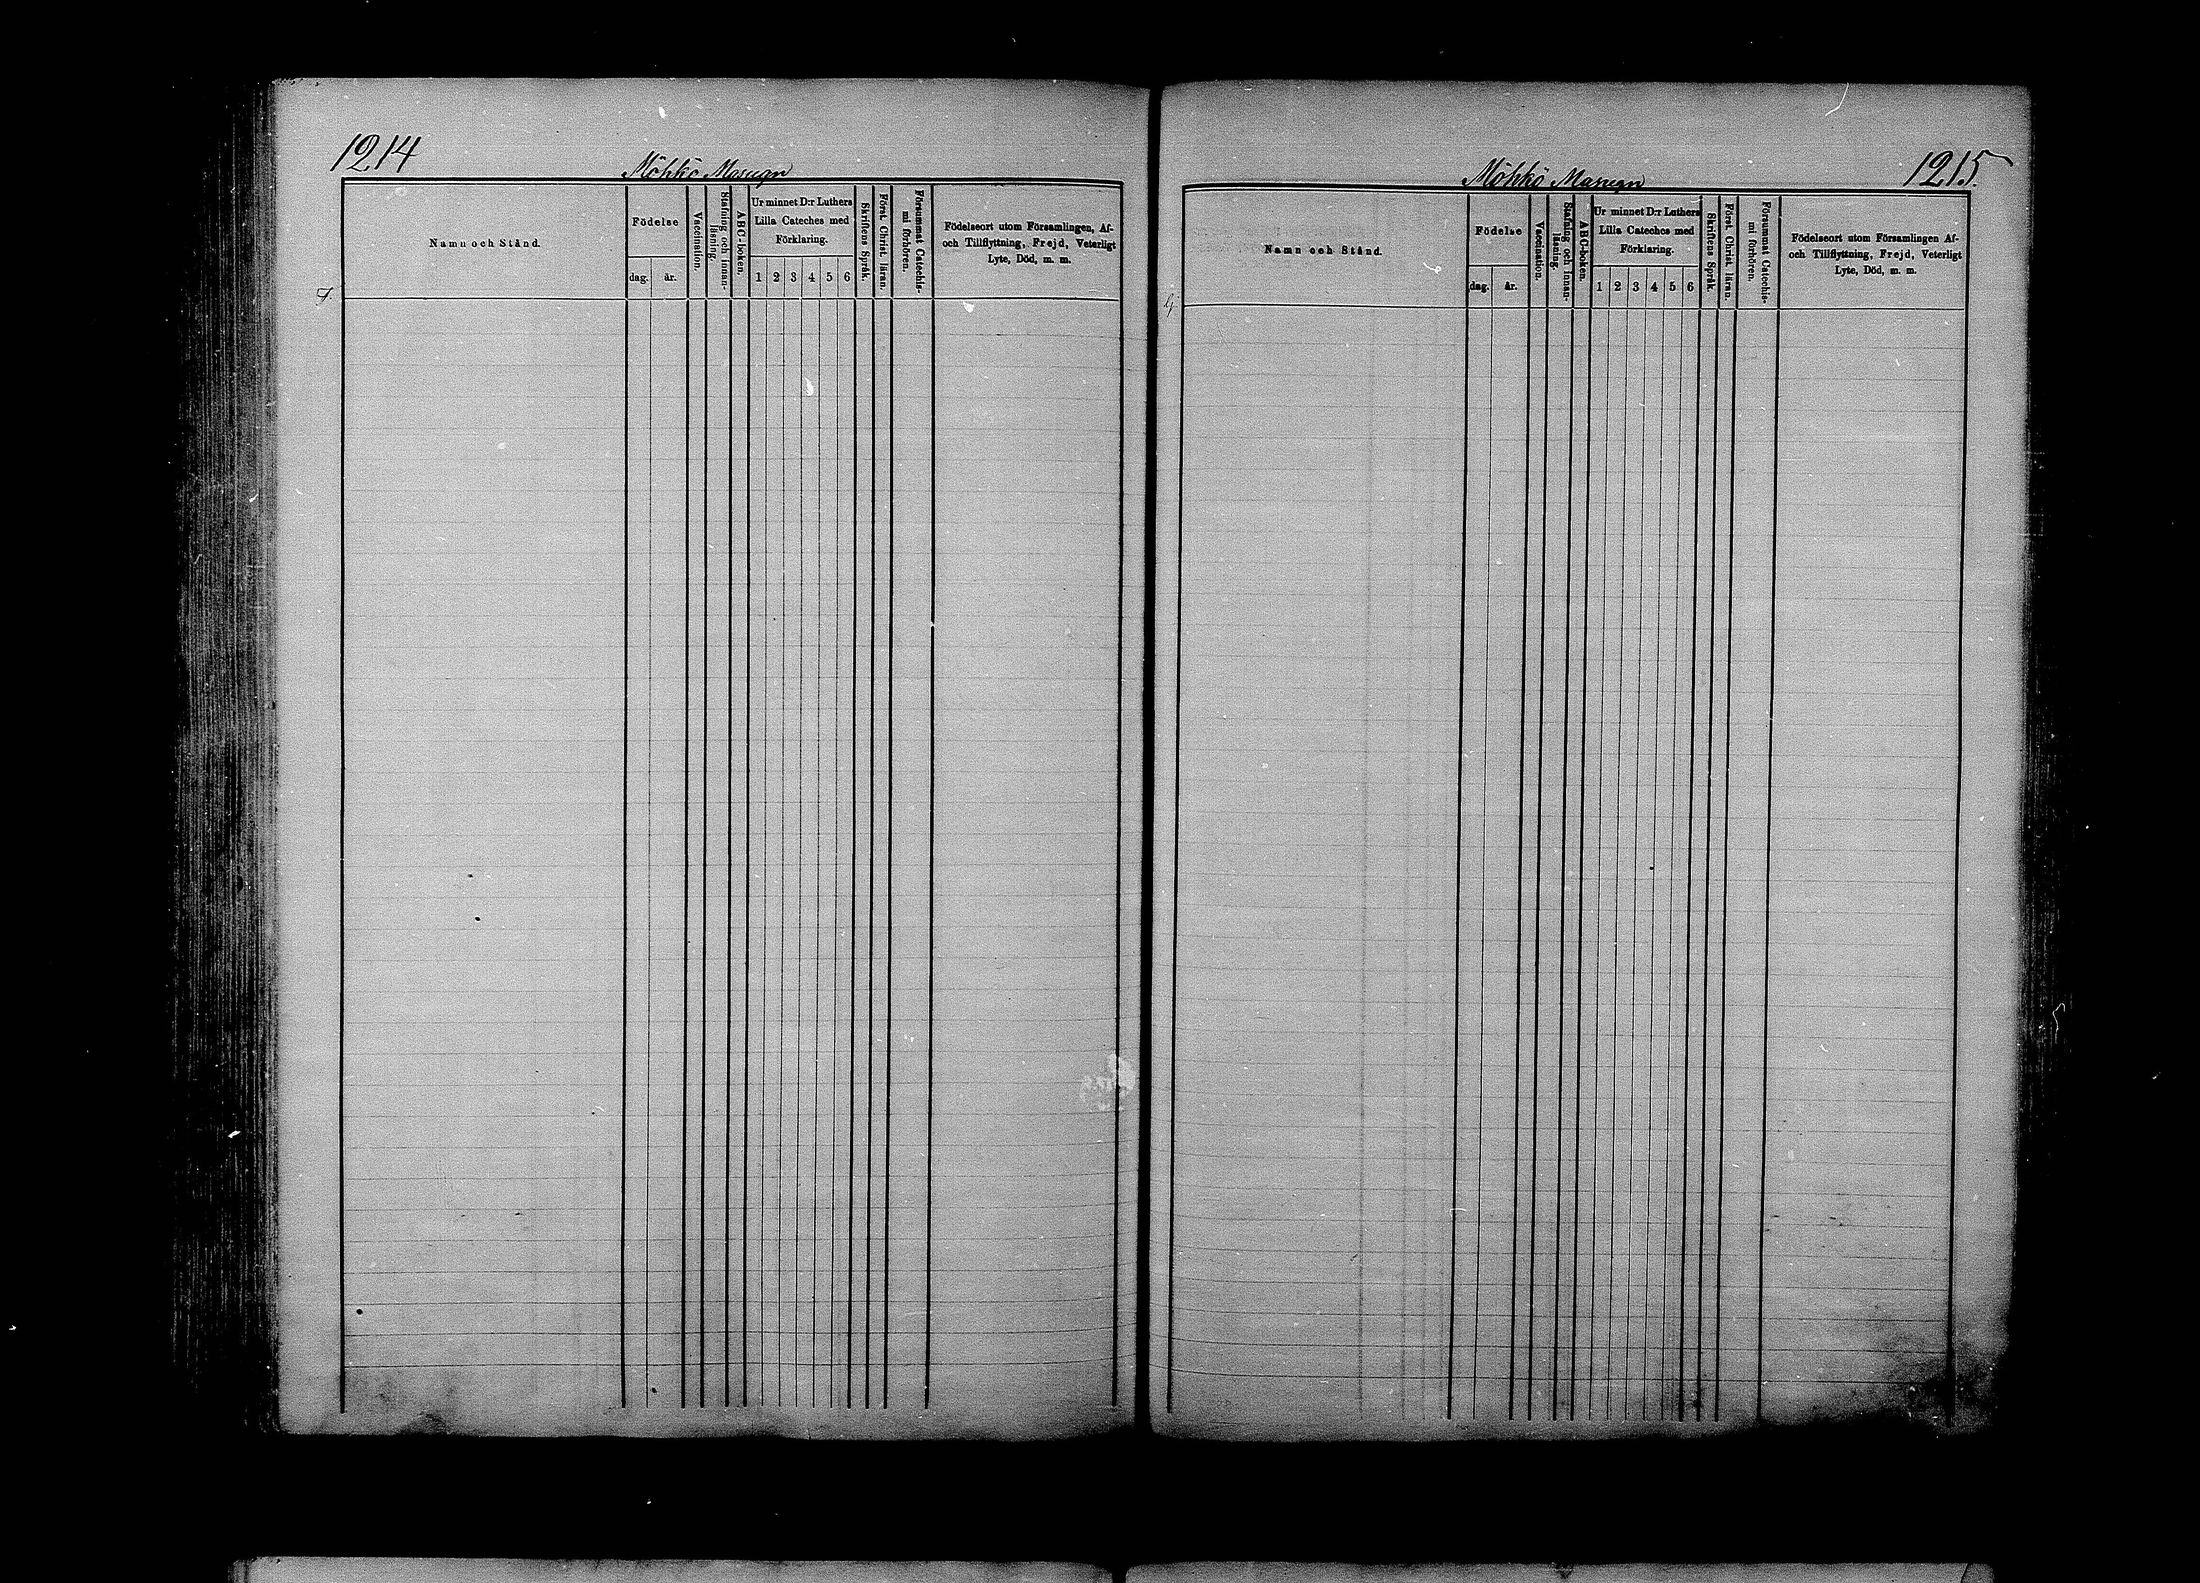 1214
Möhkö Masugn
Namn och Stånd.
Födelse
dag. år.
Vaccination.
Stafning och innan-
läsning.
ABC-boken.
Ur minnet D:r Luthers
Lilla Cateches med
Förklaring.
1 2 3 4 5 6
Skriftens Språk.
Först. Christ. läran.
Försummat Catechis-
mi förhören.
Födelseort utom Församlingen, Af-
och Tillflyttning, Frejd, Veterligt
Lyte, Död, m. m.
1215.
Möhkö Masugn
Namn och Stånd.
Födelse
dag. år.
Vaccination.
Stafning och innan-
läsning.
ABC-boken.
Ur minnet D:r Luthers
Lilla Cateches med
Förklaring.
1 2 3 4 5 6
Skriftens Språk.
Först. Christ. läran.
Försummat Catechis-
mi förhören.
Födelseort utom Församlingen Af-
och Tillflyttning, Frejd, Veterligt
Lyte, Död, m. m.